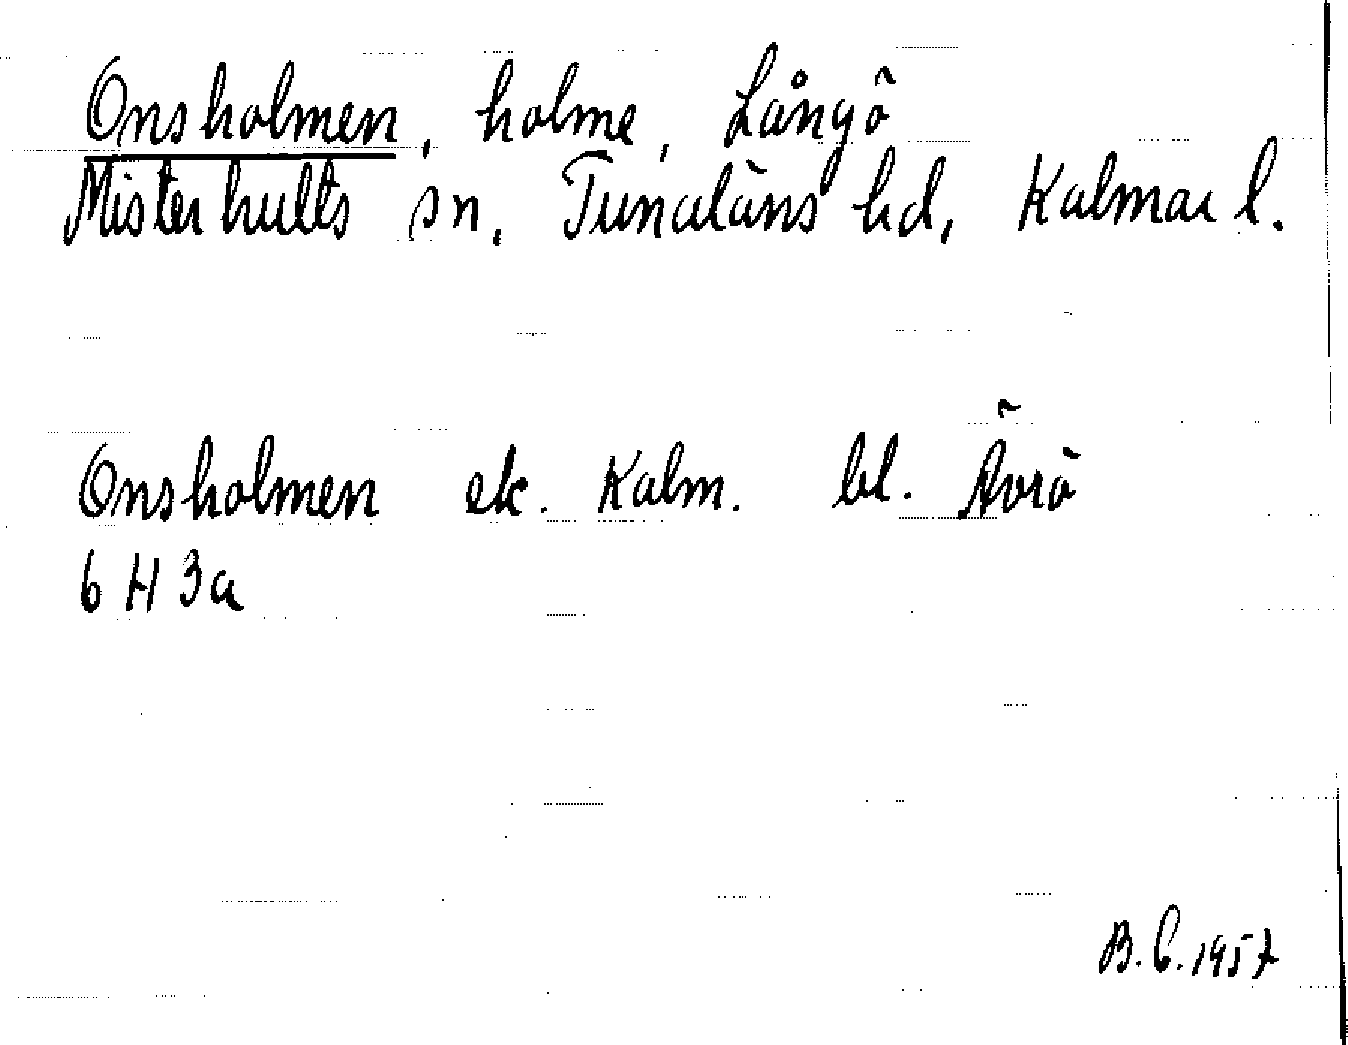 Onsholmen, holme, Långö
Misterhults sn, Tunaläns hd, Kalmar l.
Onsholmen ek. Kalm. bl. Ävrö
6 H 3a
B. C. 1957